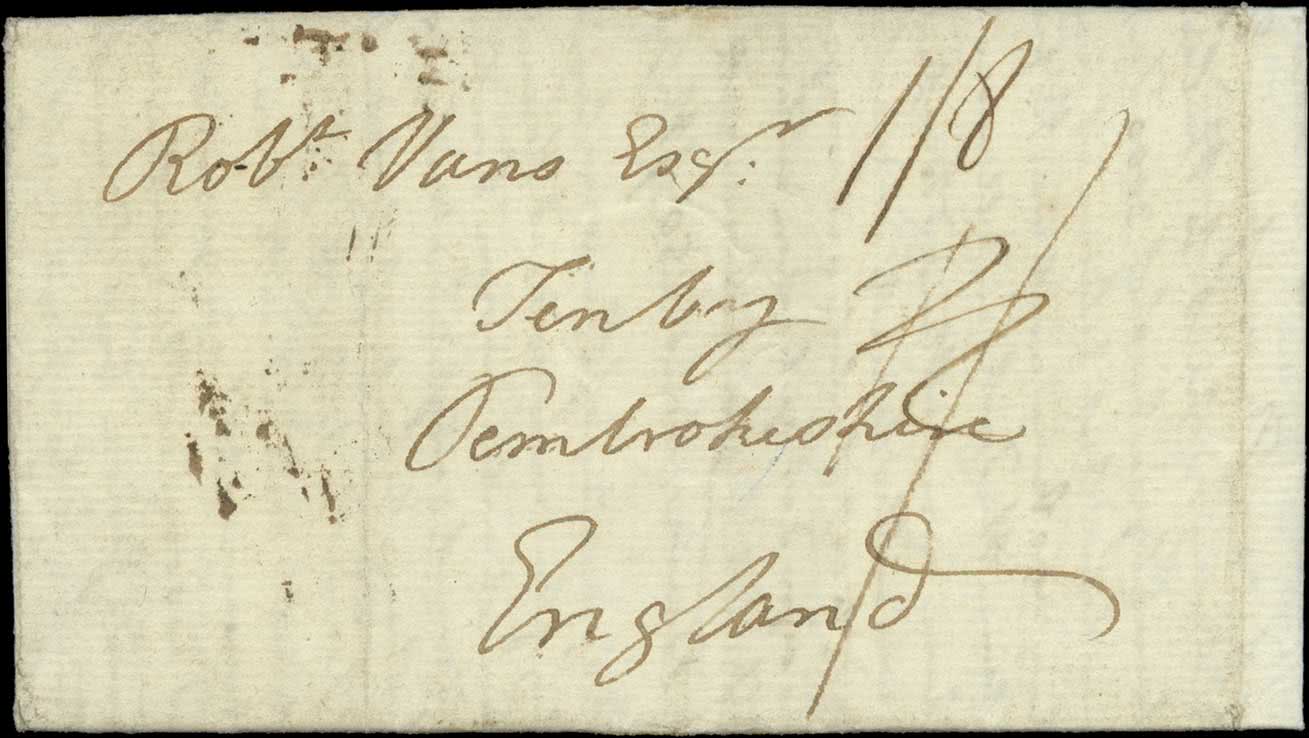 Robt Vans Esqr. 1/8
Tenby
Pembrokeshire
England